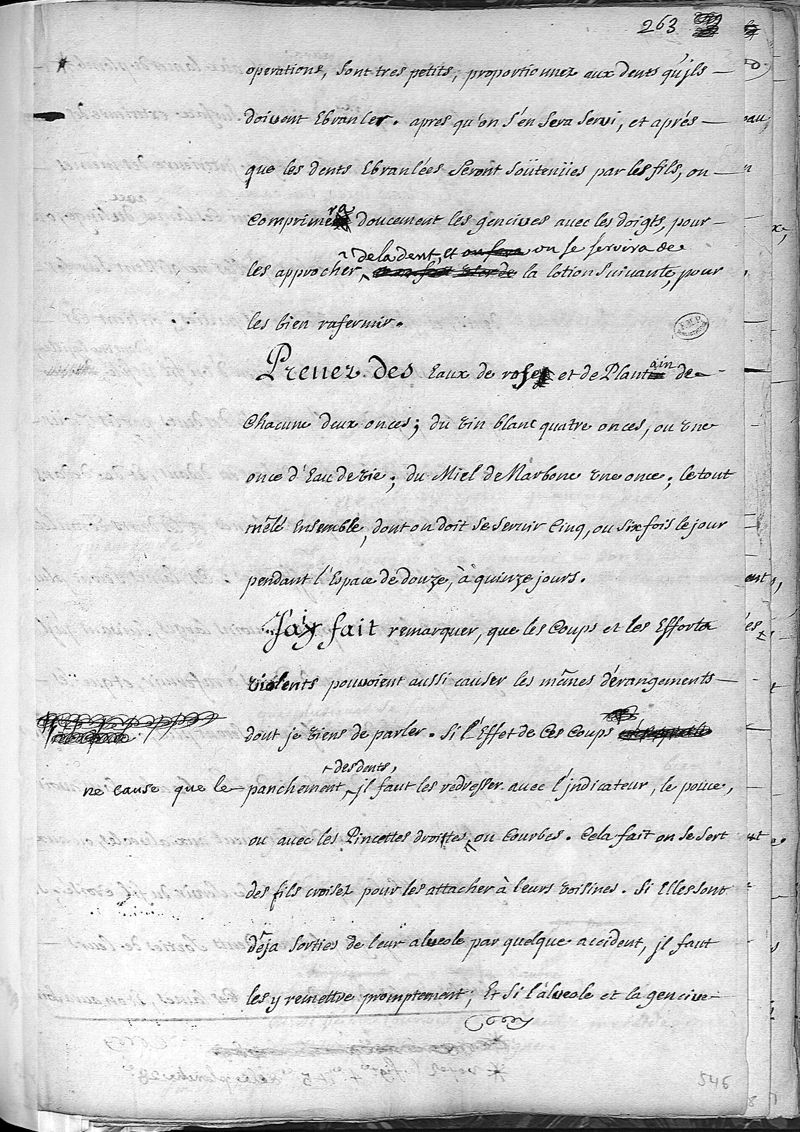 263
operations, sont tres petits, proportionnez aux dents qu'ils
doivent Ebranler. apres qu'on s'en sera servi, et aprés
que les dents Ebranlées seront soûtenües par les fils, on
comprimera doucement les gencives avec les doigts, pour
de la dent, et on se servira de
les approcher, la lotion suivante, pour
les bien rafermir.
Prenez des Eaux de rose et de Plantain de
Chacune deux onces; du vin blanc quatre onces, ou une
once d'Eau de vie; du Miel de Narbone une once; le tout
mêlé Ensemble, dont on doit se servir Cinq, ou Six fois le jour
pendant l'Espace de douze, à quinze jours.
J'ai fait remarquer, que les Coups et les Efforts
violents pouvoient aussi causer les mêmes dérangements
dont je viens de parler. Si l'Effet de Ces Coups
des dents,
ne cause que le panchement, il faut les redresser avec l'indicateur, le pouce,
ou avec les Pincettes droites, ou Courbes. Cela fait on se sert
des fils croisez pour les attacher à leurs voisines. Si Elles sont
déja sorties de leur alveole par quelque accident, il faut
les y remettre promptement; Et Si l'alveole et la gencive
546